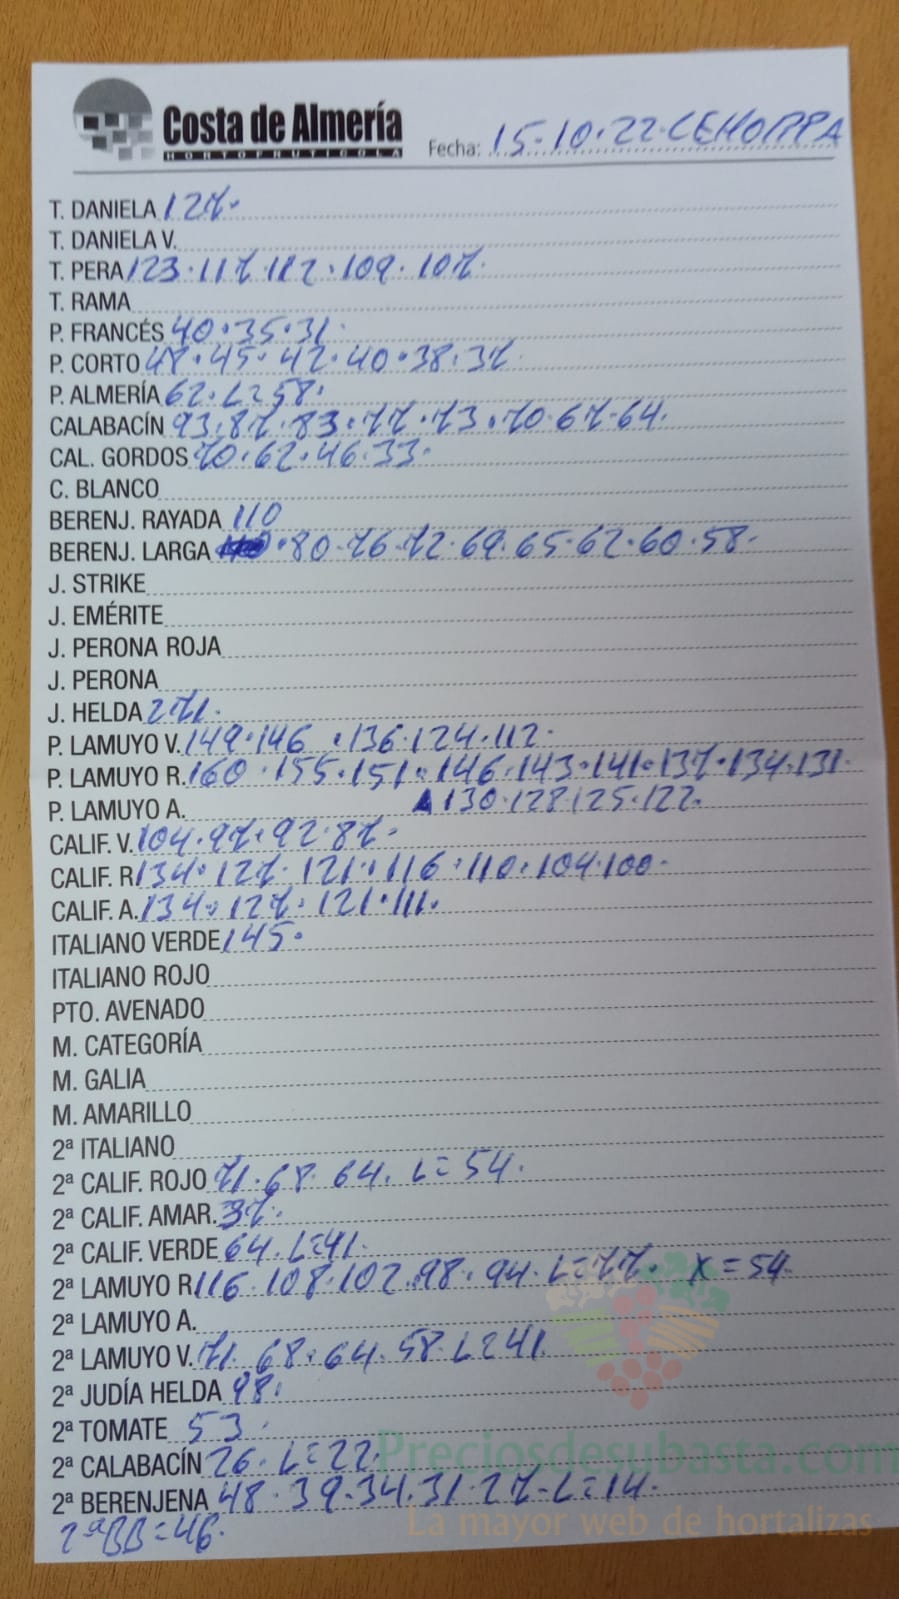 Costa de Almería
HORTOFRUTICOLA
Fecha: 15·10·22·CEHORPA
T. DANIELA 127·
T. DANIELA V.
T. PERA 123·117·112·109·107·
T. RAMA
P. FRANCÉS 40·35·31·
P. CORTO 48·45·42·40·38·37·
P. ALMERÍA 62·L=58·
CALABACÍN 93·87·83·77·73·70·67·64·
CAL. GORDOS 70·62·46·33·
C. BLANCO
BERENJ. RAYADA 110
BERENJ. LARGA ·80·76·72·69·65·62·60·58·
J. STRIKE
J. EMÉRITE
J. PERONA ROJA
J. PERONA
J. HELDA 271·
P. LAMUYO V. 149·146·136·124·112·
P. LAMUYO R. 160·155·151·146·143·141·137·134·131·
P. LAMUYO A. 130·128·125·122·
CALIF. V. 104·97·92·87·
CALIF. R 134·127·121·116·110·104·100·
CALIF. A. 134·127·121·111·
ITALIANO VERDE 145·
ITALIANO ROJO
PTO. AVENADO
M. CATEGORÍA
M. GALIA
M. AMARILLO
2ª ITALIANO
2ª CALIF. ROJO 71·68·64·L=54·
2ª CALIF. AMAR. 37·
2ª CALIF. VERDE 64·L=41·
2ª LAMUYO R 116·108·102·98·94·L=77· X=54·
2ª LAMUYO A.
2ª LAMUYO V. 71·68·64·58·L=41
2ª JUDÍA HELDA 98·
2ª TOMATE 53·
2ª CALABACÍN 26·L=22·
Preciosdesubasta.com
2ª BERENJENA 48·39·34·31·27·L=14·
La mayor web de hortalizas
2ªBB=46·